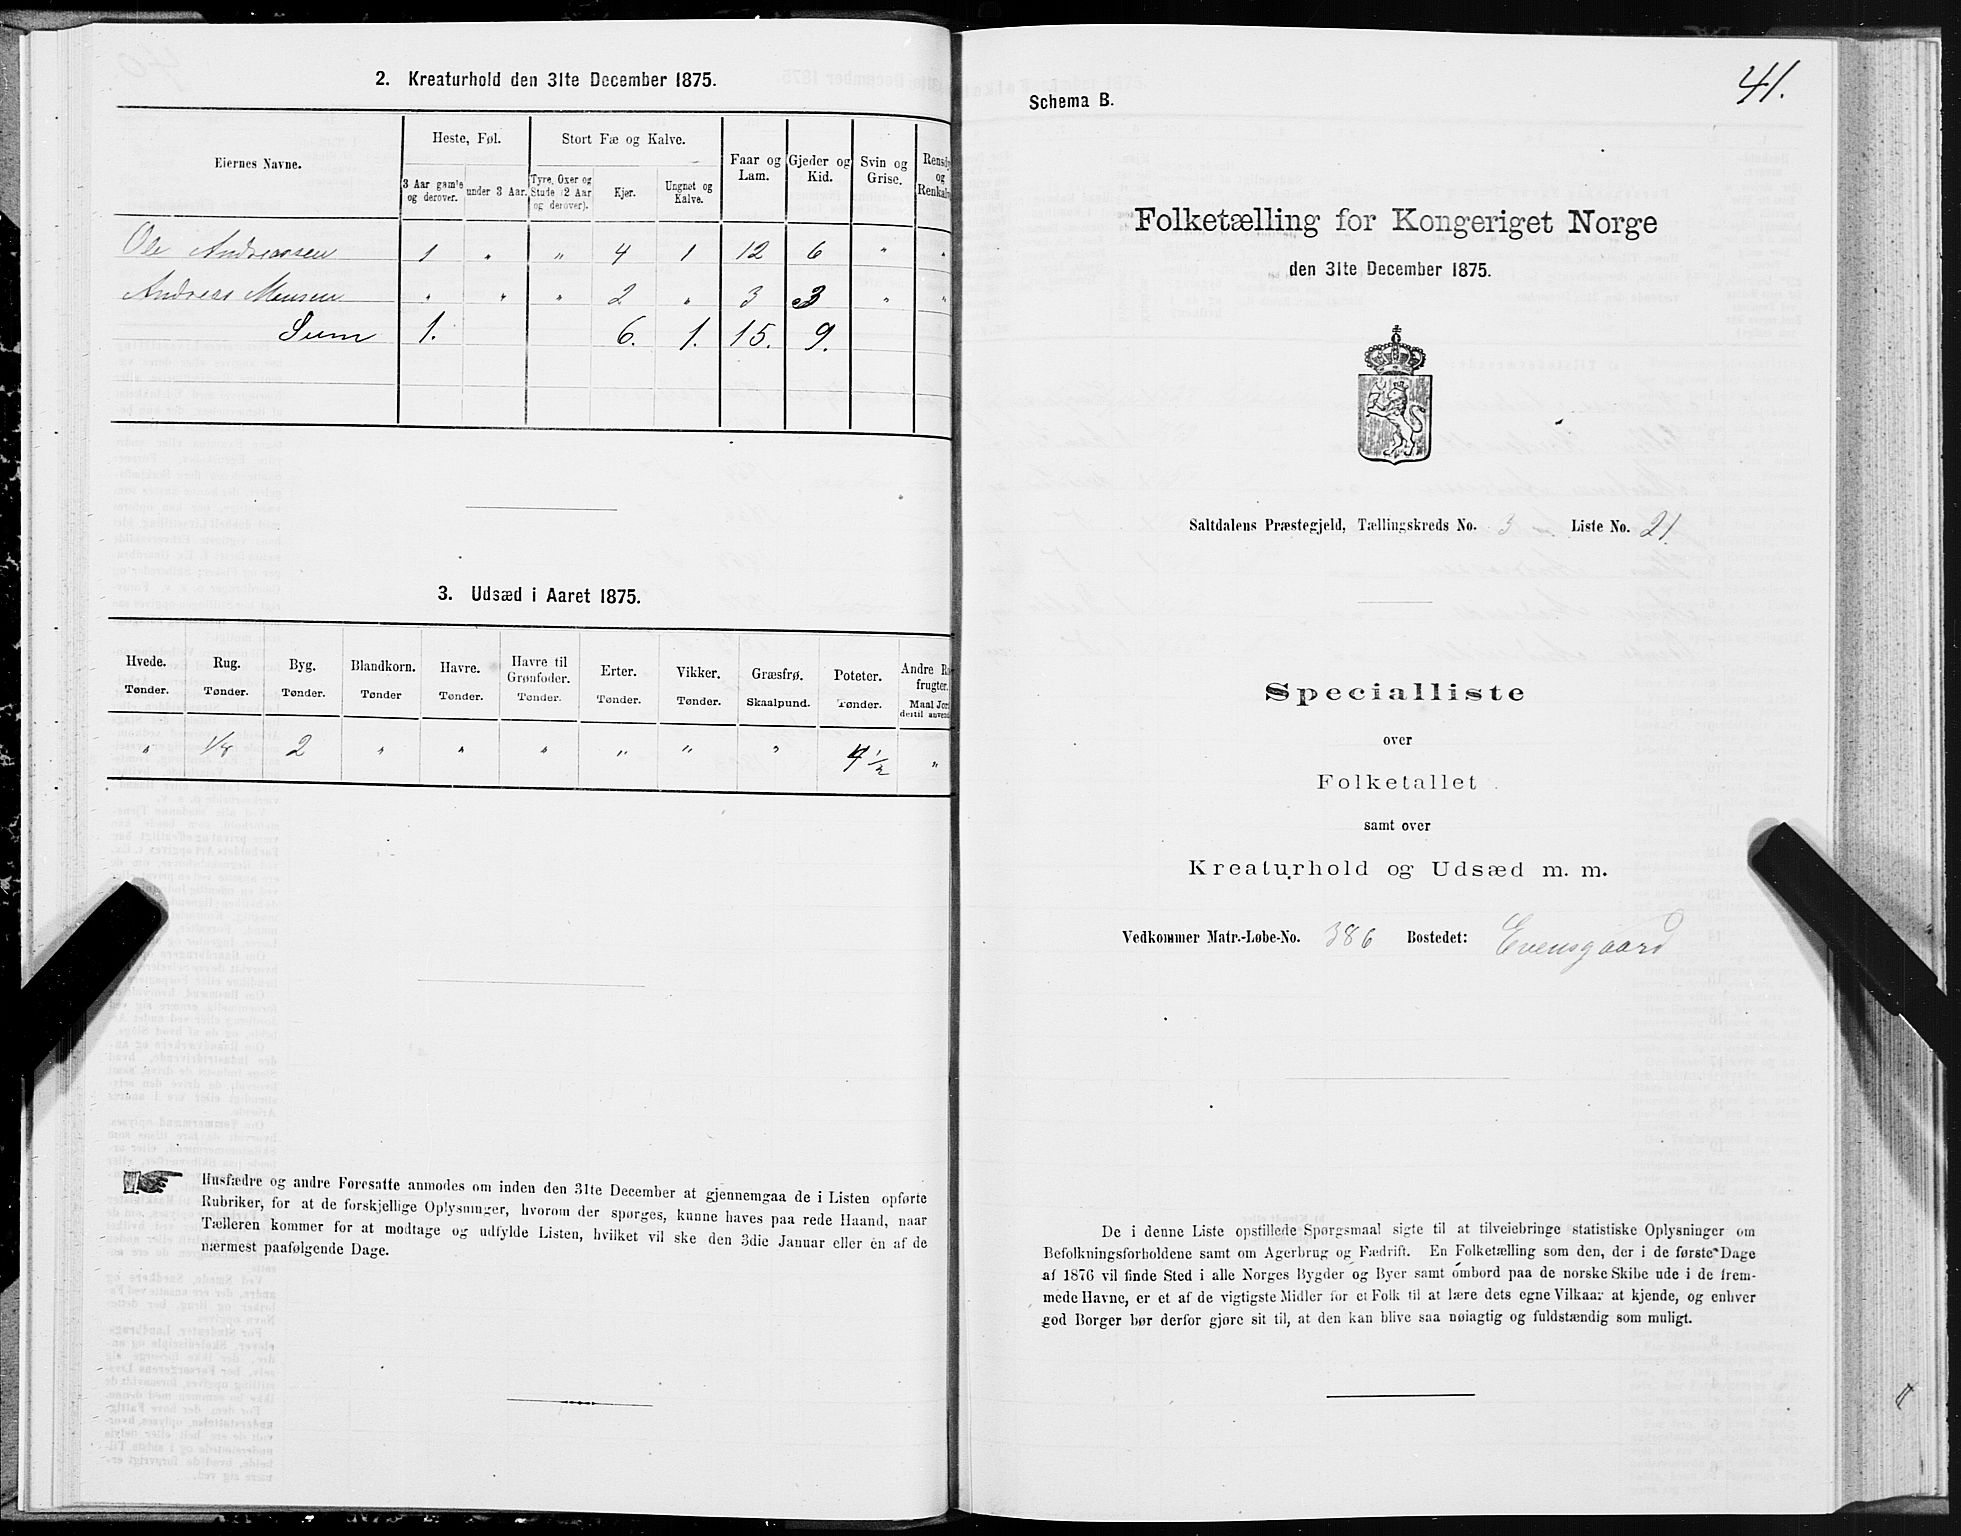 2. Kreaturhold den 31te December 1875.
Eiernes Navne.
Heste, Føl.
Stort Fæ og Kalve.
Faar og Lam.
Gjeder og Kid.
Svin og Grise.
og
3 Aar gamle og derover.
under 3 Aar.
Tyre, Oxer og Stude (2 Aar og derover).
Kjør.
Ungnet og Kalve.
Ole Andreassen 1 " " 4 1 12 6 " "
Andreas Monsen " " " 2 " 3 3 " "
Sum 1. 6. 1. 15. 9.
3. Udsæd i Aaret 1875.
Hvede. Rug. Byg. Blandkorn. Havre. Havre til Grønfoder. Erter. Vikker. Græsfrø. Poteter. Andre
frugter.
Tønder. Tønder. Tønder. Tønder Tønder. Tønder. Tønder. Tønder. Skaalpund. Tønder. Maal
dertil
" 1/8 2 " " " " " " 4 1/2 "
Husfædre og andre Foresatte anmodes om inden den 31te December at gjennemgaa de i Listen opførte
Rubriker, for at de forskjellige Oplysninger, hvorom der spørges, kunne haves paa rede Haand, naar
Tælleren kommer for at modtage og udfylde Listen, hvilket vil ske den 3die Januar eller en af de
nærmest paafølgende Dage.
41.
Schema B.
Folketælling for Kongeriget Norge
den 31te December 1875.
Saltdalens Præstegjeld, Tællingskreds No. 3 Liste No. 21.
Specialliste
over
Folketallet
samt over
Kreaturhold og Udsæd m. m.
Vedkommer Matr.-Løbe-No. 386 Bostedet: Evensgaard
De i denne Liste opstillede Spørgsmaal sigte til at tilveiebringe statistiske Oplysninger om
Befolkningsforholdene samt om Agerbrug og Fædrift. En Folketælling som den, der i de første Dage
af 1876 vil finde Sted i alle Norges Bygder og Byer samt ombord paa de norske Skibe ude i de frem-
mede Havne, er et af de vigtigste Midler for et Folk til at lære dets egne Vilkaar at kjende, og enhver
god Borger bør derfor gjøre sit til, at den kan blive saa nøiagtig og fuldstændig som muligt.